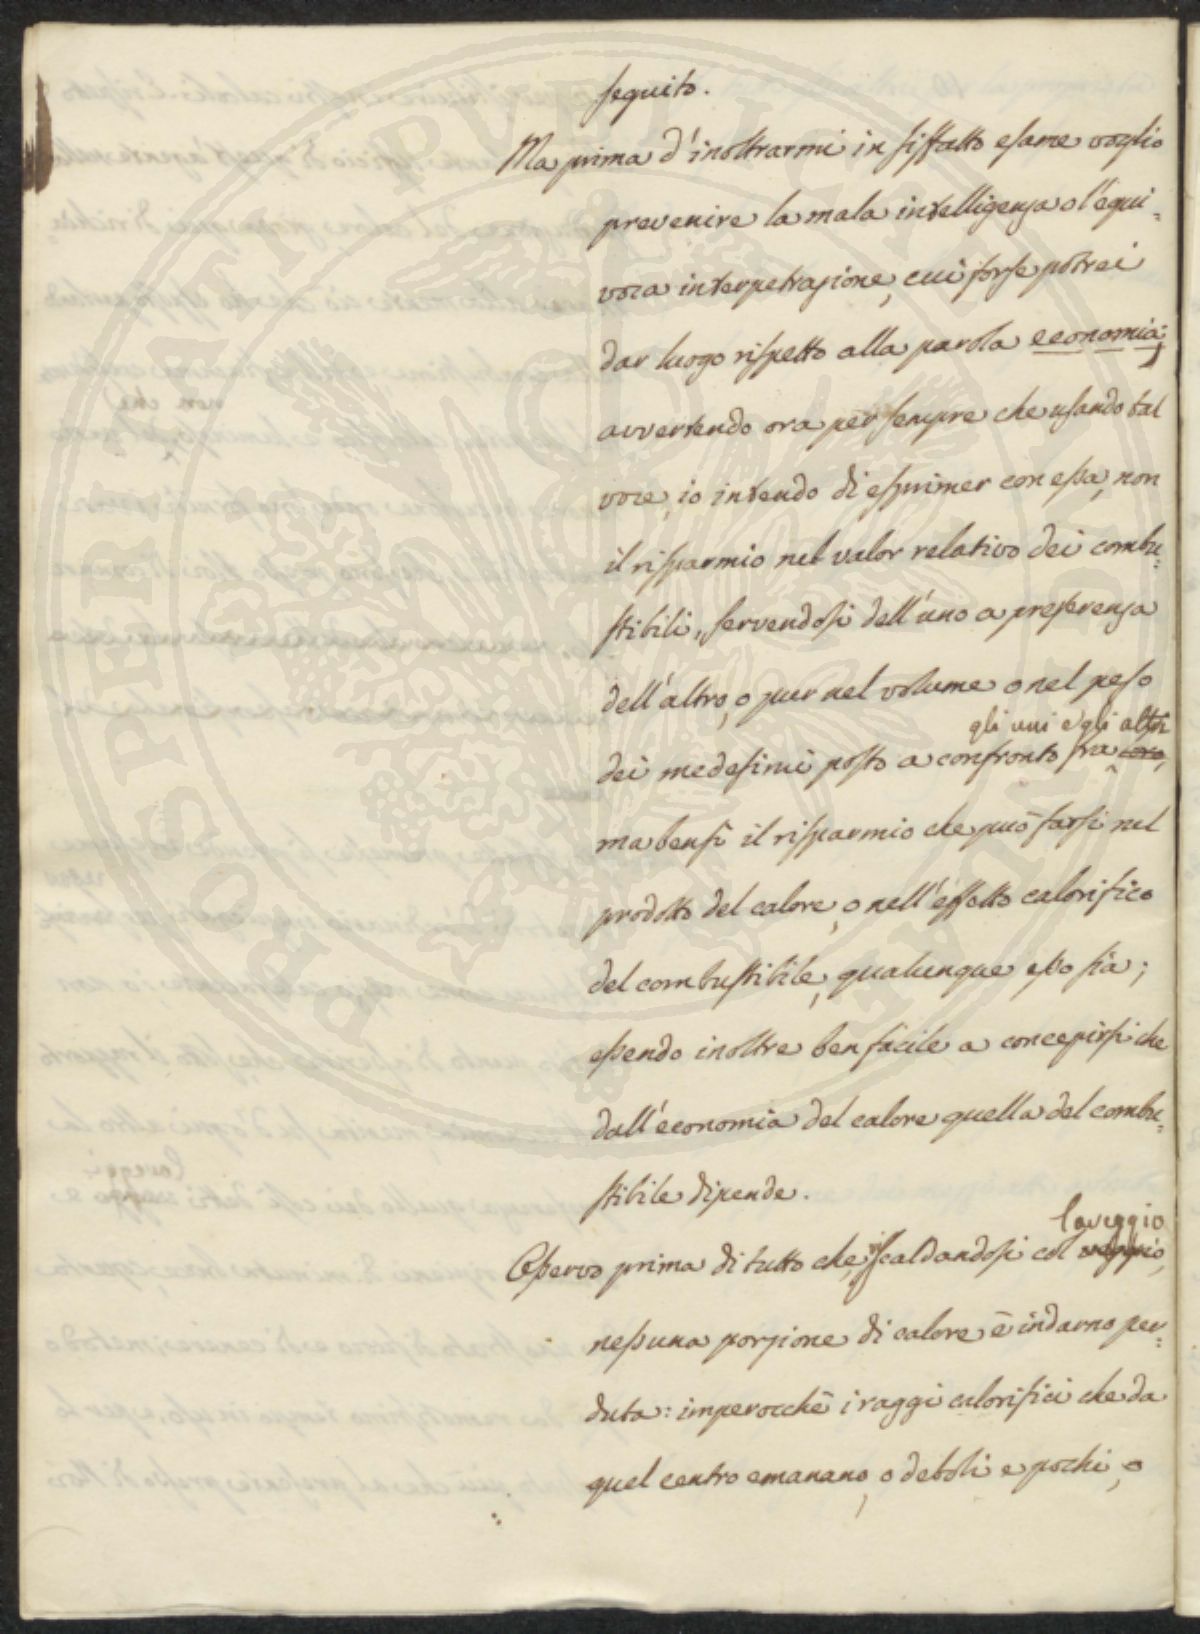 seguito.
Ma prima d'inoltrarmi in siffatto esame voglio
prevenire la mala intelligenza o l'equi=
voca interpetrazione, cui forse potrei
dar luogo rispetto alla parola economia;
avvertendo ora per sempre che usando tal
voce, io intendo di esprimer con essa, non
il risparmio nel valor relativo dei combu=
stibili, servendosi dell'uno a preferenza
dell'altro, o pur nel volume o nel peso
gli uni e gli altri
dei medesimi posto a confronto fra loro,
ma bensì il risparmio che può farsi nel
prodotto del calore, o nell'effetto calorifico
del combustibile, qualunque esso sia;
essendo inoltre ben facile a concepirsi che
dall'economia del calore quella del combu=
stibile dipende.
laveggio
Osservo prima di tutto che, riscaldandosi col veggio,
nessuna porzione di calore è indarno per=
duta: imperocchè i raggi calorifici che da
quel centro emanano, o deboli e pochi, o
PROSPERITATI PUBLICAE